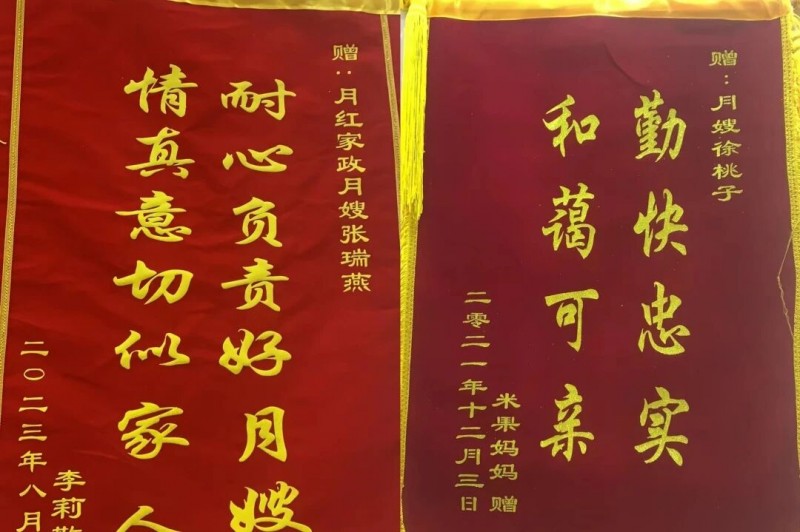 赠:月红家政月嫂张瑞燕
耐心负责好月嫂
情真意切似家人
李莉
二〇二三年八月
赠:月嫂徐桃子
勤快忠实
和蔼可亲
米果妈妈 赠
二零二一年十二月三日